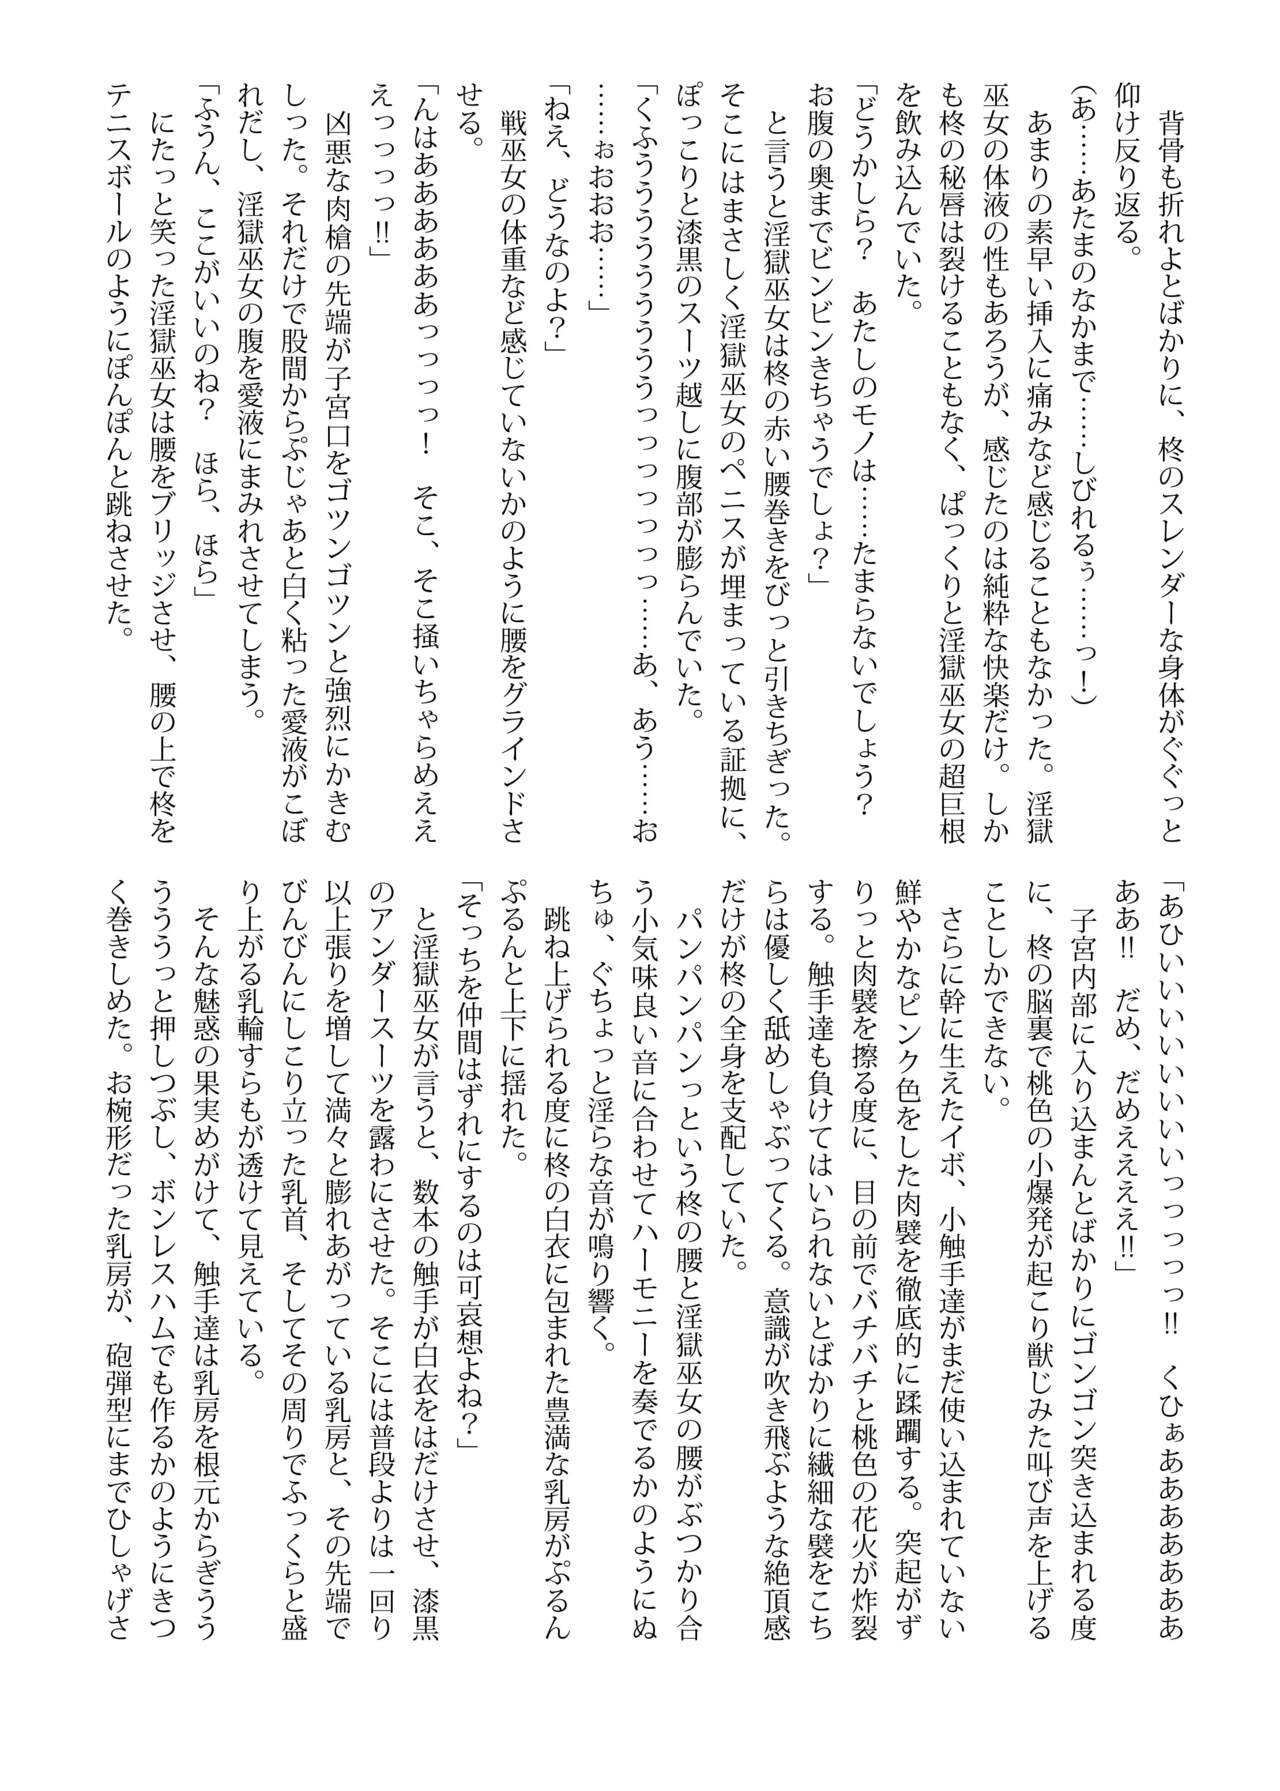 背骨も折れよとばかりに、柊のスレンダーな身体がぐぐっと
仰け反り返る。
（あ……あたまのなかまで……しびれるぅ……っ！）
　あまりの素早い挿入に痛みなど感じることもなかった。淫獄
巫女の体液の性もあろうが、感じたのは純粋な快楽だけ。しか
も柊の秘唇は裂けることもなく、ぱっくりと淫獄巫女の超巨根
を飲み込んでいた。
「どうかしら？　あたしのモノは……たまらないでしょう？
お腹の奥までビンビンきちゃうでしょ？」
　と言うと淫獄巫女は柊の赤い腰巻きをびっと引きちぎった。
そこにはまさしく淫獄巫女のペニスが埋まっている証拠に、
ぽっこりと漆黒のスーツ越しに腹部が膨らんでいた。
「くふうううううううううっっっっっっ……あ、あう……お
……ぉおおお……」
「ねえ、どうなのよ？」
　戦巫女の体重など感じていないかのように腰をグラインドさ
せる。
「んはあああああああっっっっ！　そこ、そこ掻いちゃらめええ
えっっっっ!!」
　凶悪な肉槍の先端が子宮口をゴツンゴツンと強烈にかきむ
しった。それだけで股間からぷじゃあと白く粘った愛液がこぼ
れだし、淫獄巫女の腹を愛液にまみれさせてしまう。
「ふうん、ここがいいのね？　ほら、ほら」
　にたっと笑った淫獄巫女は腰をブリッジさせ、腰の上で柊を
テニスボールのようにぽんぽんと跳ねさせた。
「あひいいいいいいいいいいっっっっっ!!　くひぁあああああああ
ああ!!　だめ、だめええええ!!」
　子宮内部に入り込まんとばかりにゴンゴン突き込まれる度
に、柊の脳裏で桃色の小爆発が起こり獣じみた叫び声を上げる
ことしかできない。
　さらに幹に生えたイボ、小触手達がまだ使い込まれていない
鮮やかなピンク色をした肉襞を徹底的に蹂躙する。突起がず
りっと肉襞を擦る度に、目の前でバチバチと桃色の花火が炸裂
する。触手達も負けてはいられないとばかりに繊細な襞をこち
らは優しく舐めしゃぶってくる。意識が吹き飛ぶような絶頂感
だけが柊の全身を支配していた。
　パンパンパンっという柊の腰と淫獄巫女の腰がぶつかり合
う小気味良い音に合わせてハーモニーを奏でるかのようにぬ
ちゅ、ぐちょっと淫らな音が鳴り響く。
　跳ね上げられる度に柊の白衣に包まれた豊満な乳房がぷるん
ぷるんと上下に揺れた。
「そっちを仲間はずれにするのは可哀想よね？」
　と淫獄巫女が言うと、数本の触手が白衣をはだけさせ、漆黒
のアンダースーツを露わにさせた。そこには普段よりは一回り
以上張りを増して満々と膨れあがっている乳房と、その先端で
びんびんにしこり立った乳首、そしてその周りでふっくらと盛
り上がる乳輪すらもが透けて見えている。
　そんな魅惑の果実めがけて、触手達は乳房を根元からぎうう
うううっと押しつぶし、ボンレスハムでも作るかのようにきつ
く巻きしめた。お椀形だった乳房が、砲弾型にまでひしゃげさ